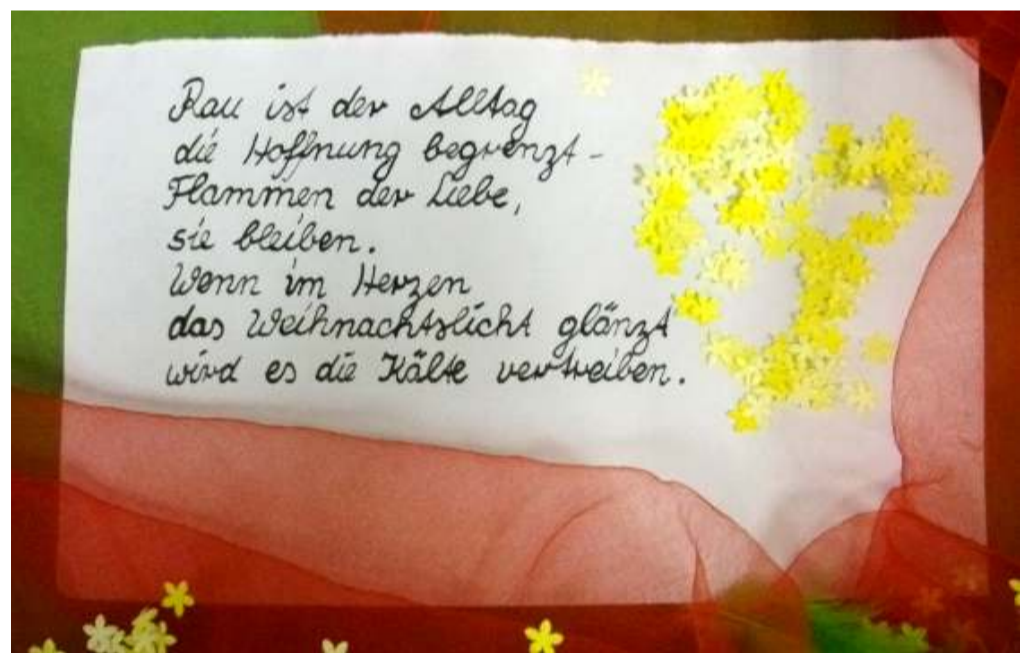 Rau ist der Alltag
die Hoffnung begrenzt -
Flammen der Liebe,
sie bleiben.
Wenn im Herzen
das Weihnachtslicht glänzt
wird es die Kälte vertreiben.